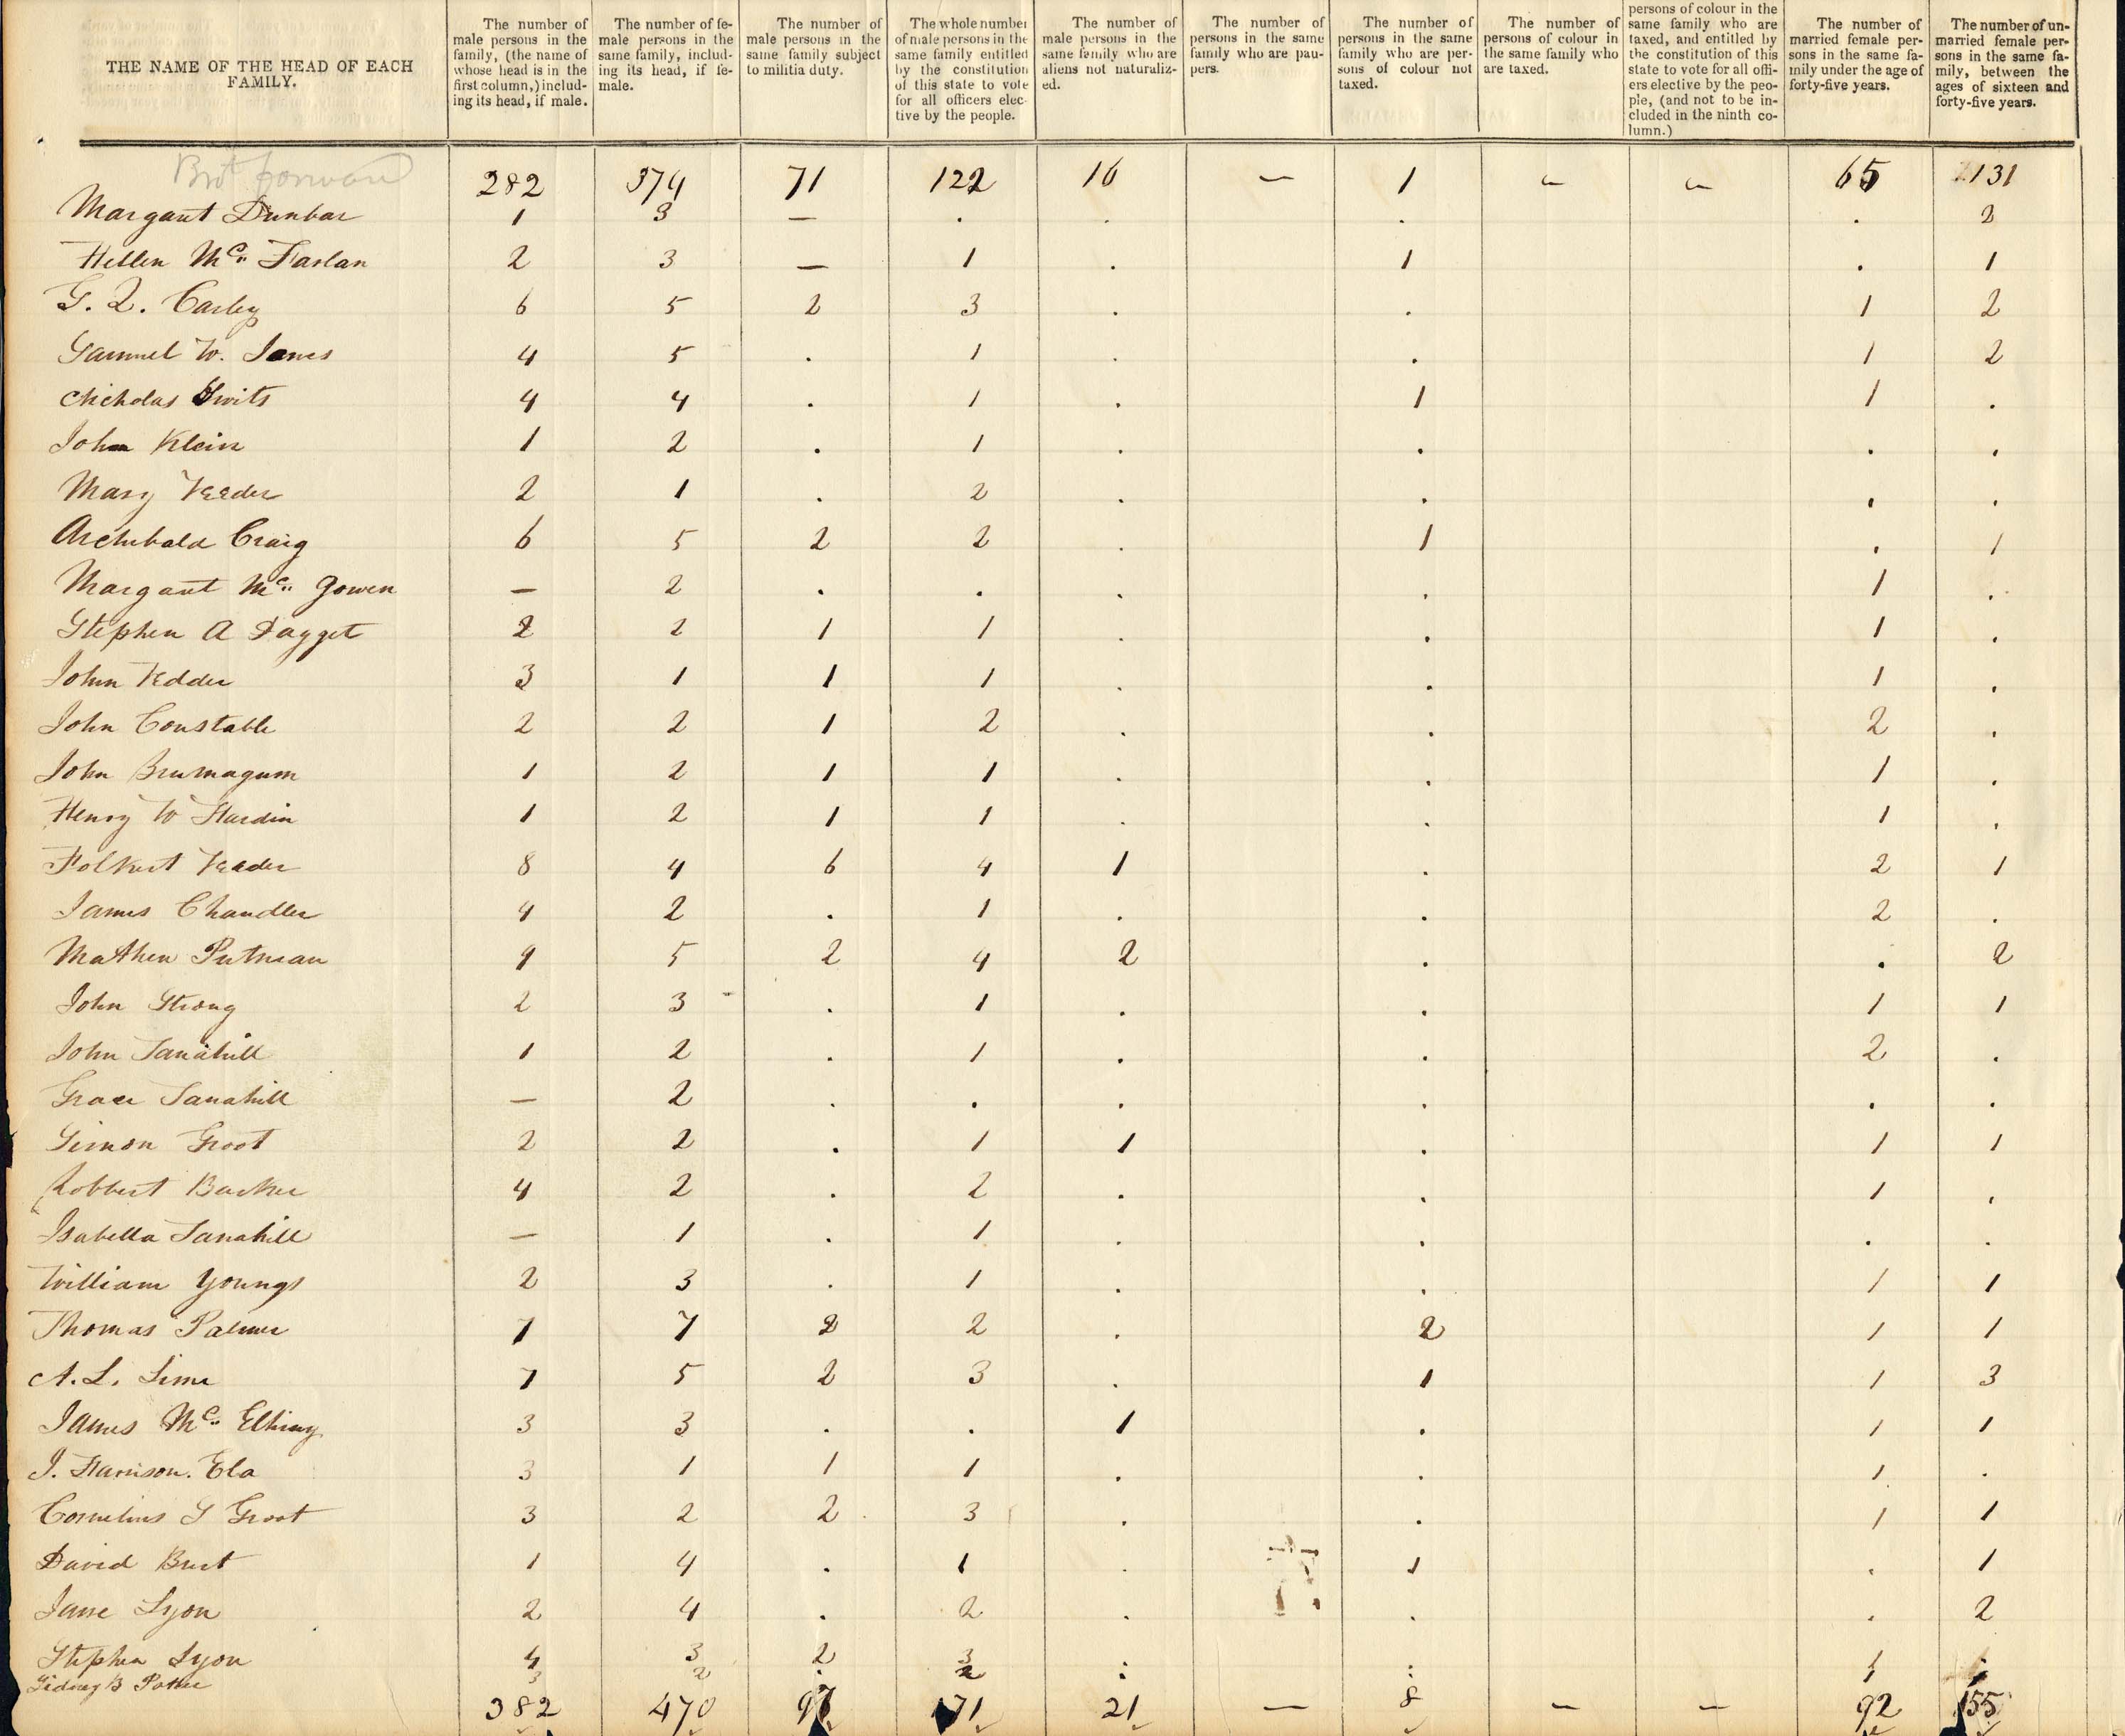 THE NAME OF THE HEAD OF EACH FAMILY.
The number of male persons in the family, (the name of whose head is in the first column,) including its head, if male.
The number of female persons in the same family, including its head, if female.
The number of male persons in the same family subject to militia duty.
The whole number of male persons in the same family entitled by the constitution of this state to vote for all officers elective by the people.
The number of male persons in the same family who are aliens not naturalized.
The number of persons in the same family who are paupers.
The number of persons in the same family who are persons of colour not taxed.
The number of persons of colour in the same family who are taxed.
persons of colour in the same family who are taxed, and entitled by the constitution of this state to vote for all officers elective by the people, (and not to be included in the ninth column.)
The number of married female persons in the same family under the age of forty-five years.
The number of unmarried female persons in the same family, between the ages of sixteen and forty-five years.
Brot forward 282 374 71 122 16 — 1 — — 65 131
Margaret Dunbar 1 3 — . . . . 2
Hellen Mc Farlan 2 3 — 1 . 1 . 1
G. Q. Carley 6 5 2 3 . . 1 2
Samuel W. Jones 4 5 . 1 . . 1 2
Nicholas Swits 4 4 . 1 . 1 1 .
John Klein 1 2 . 1 . . . .
Mary Veeder 2 1 . 2 . . . .
Archibald Craig 6 5 2 2 . 1 . 1
Margaret Mc Gowen — 2 . . . . 1 .
Stephen A Dagget 2 2 1 1 . . 1 .
John Vedder 3 1 1 1 . . 1 .
John Constable 2 2 1 2 . . 2 .
John Brumagum 1 2 1 1 . . 1 .
Henry W Hardin 1 2 1 1 . . 1 .
Folkert Veeder 8 4 6 4 1 . 2 1
James Chandler 4 2 . 1 . . 2 .
Mathew Putman 9 5 2 4 2 . . 2
John Strong 2 3 . 1 . . 1 1
John Tanahill 1 2 . 1 . . 2 .
Grace Tanahill — 2 . . . . . .
Simon Groot 2 2 . 1 1 . 1 1
Robbert Barker 4 2 . 2 . . 1 .
Isabella Tanahill — 1 . 1 . . . .
William Youngs 2 3 . 1 . . 1 1
Thomas Palmer 7 7 2 2 . 2 1 1
A. L. Linn 7 5 2 3 . 1 1 3
James Mc 3 3 . . 1 . 1 1
J. Harrison. Ela 3 1 1 1 . . 1 .
Cornelius S Groot 3 2 2 3 . . 1 1
David Burt 1 4 . 1 . 1 . 1
Jane Lyon 2 4 . 2 . . . 2
Stephen Lyon 4 3 2 3 . . 1 .
Sidney B Potter 3 2 . 2 . . 1 .
382 470 97 171 21 — 8 — — 92 155